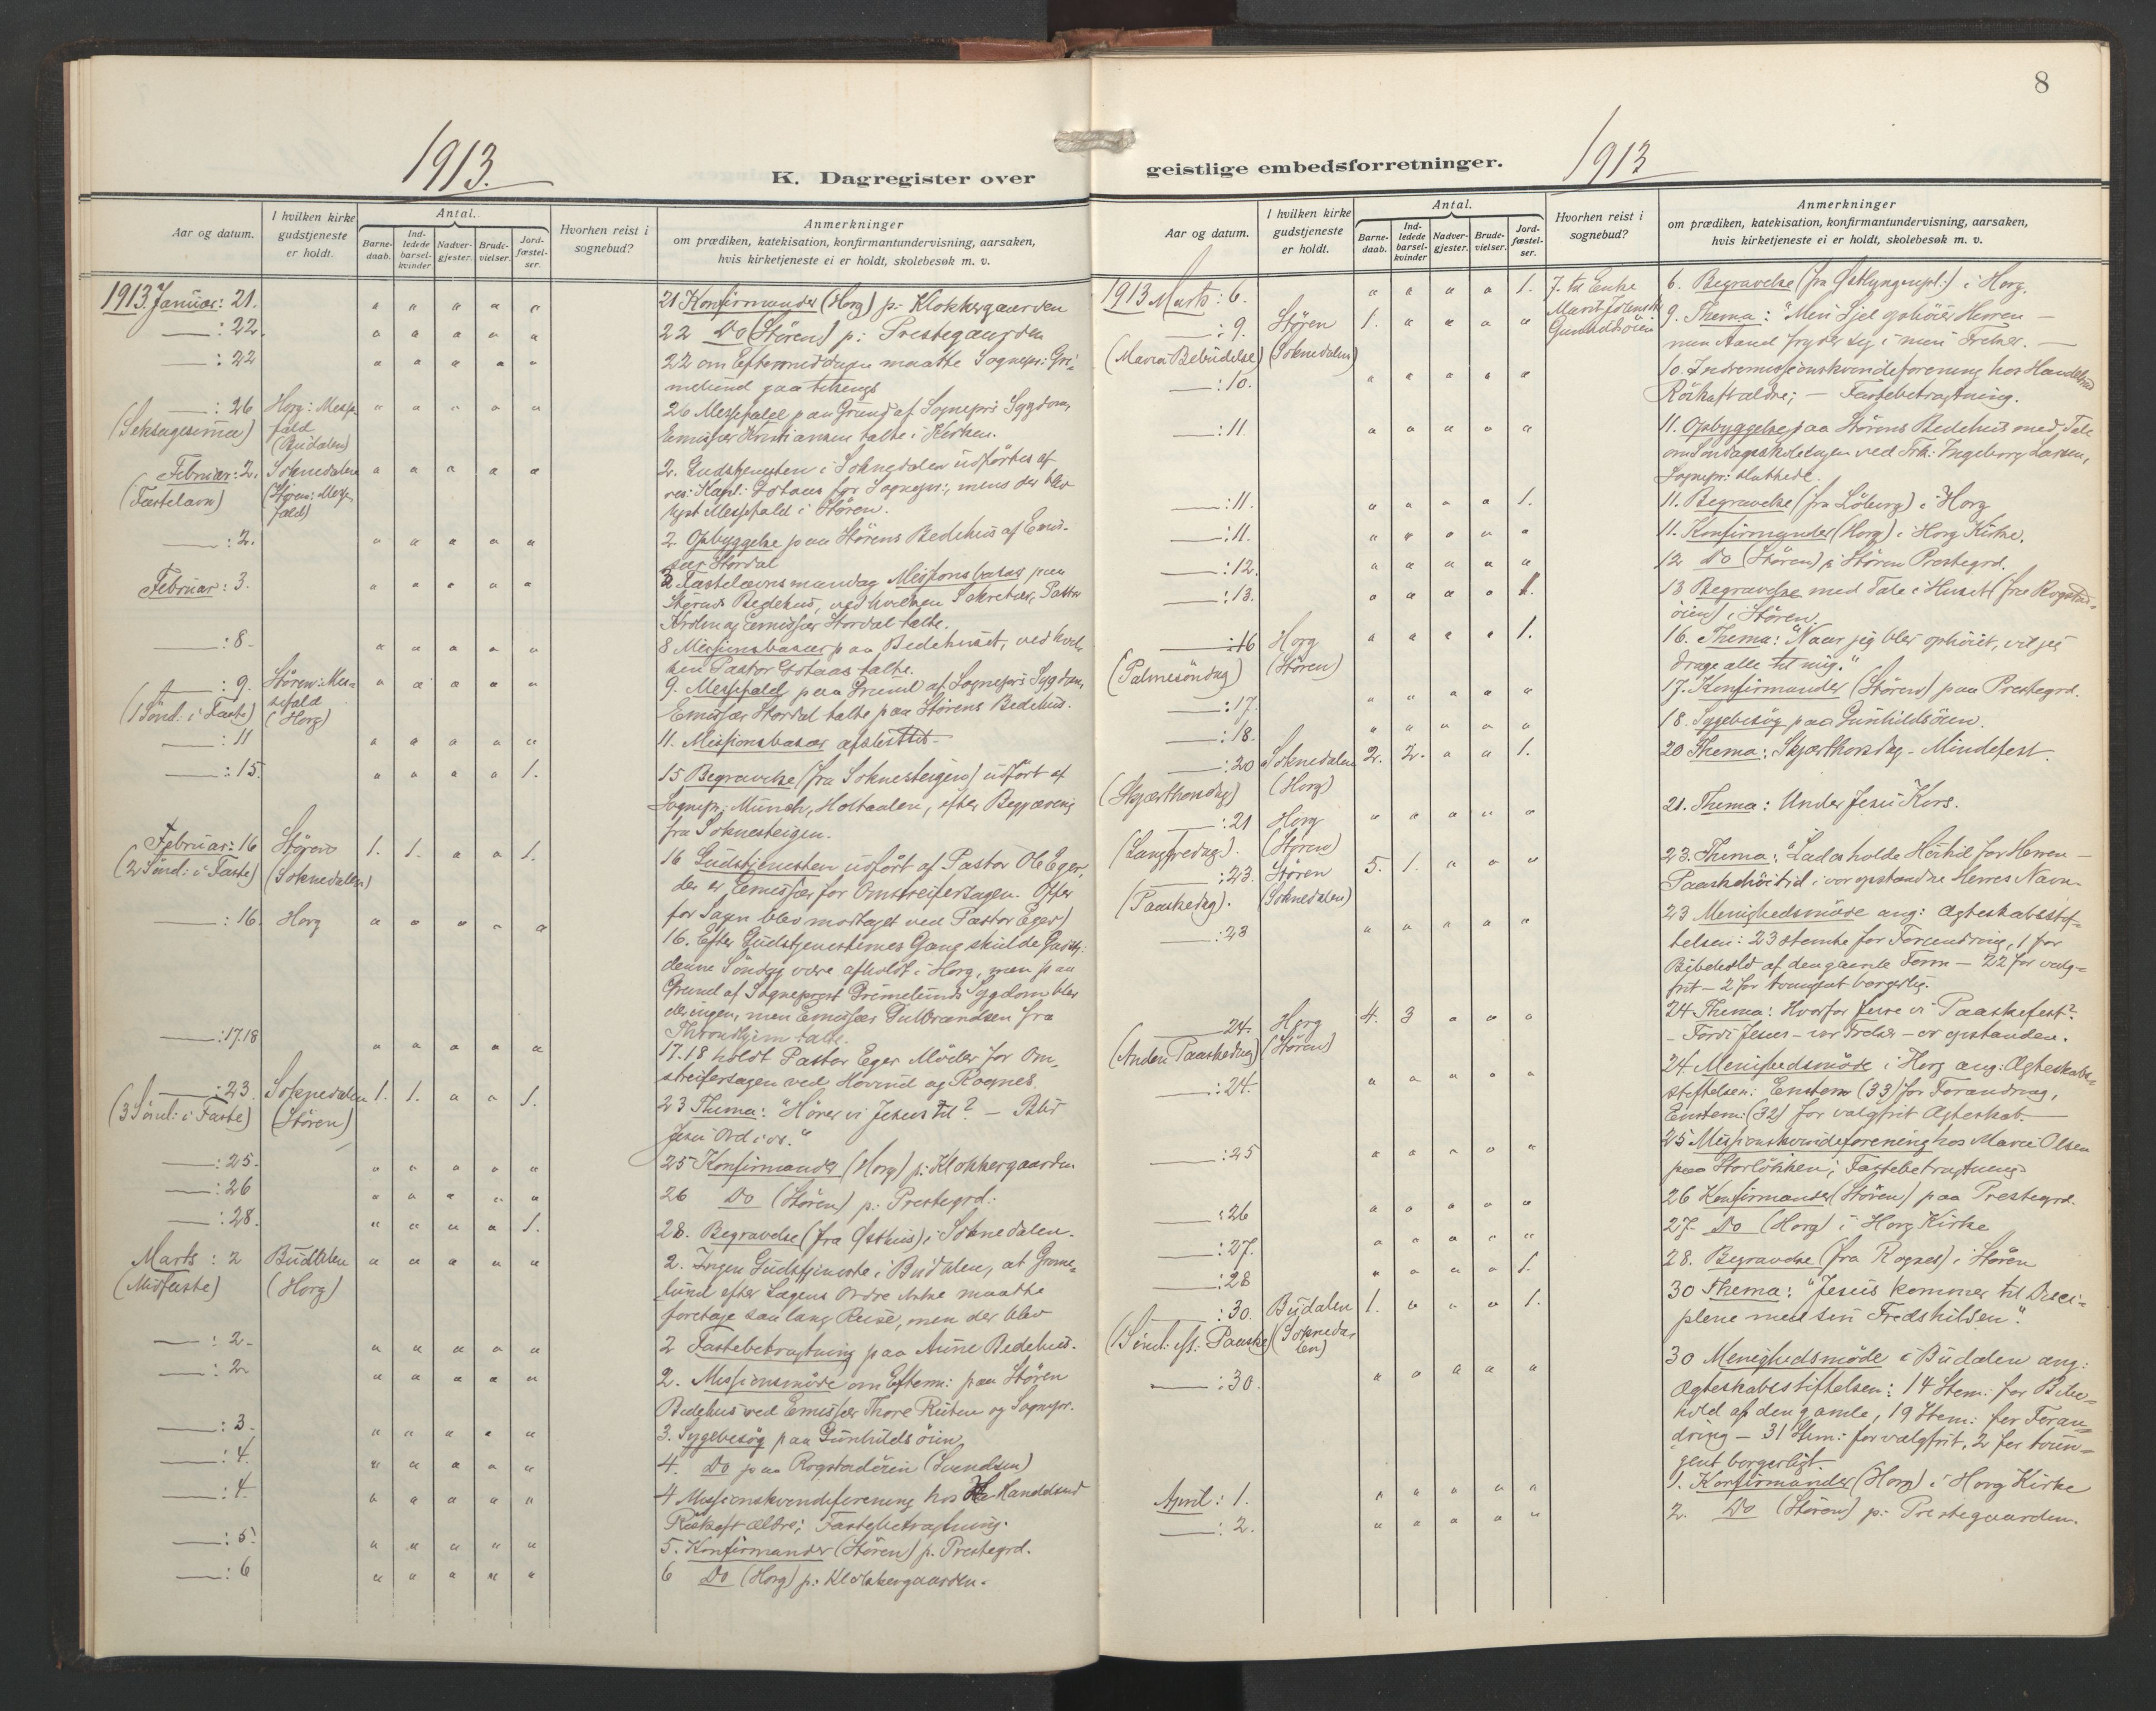 8
1913.
1913
K. Dagregister over
geistlige embedsforretninger.
Aar og datum.
I hvilken kirke
gudstjeneste
er holdt.
Antal.
Barne-
daab.
Ind-
ledede
barsel-
kvinder
Nadver-
gjester.
Brude-
vielser.
Jord-
fæstel-
ser.
Hvorhen reist i
sognebud?
Anmerkninger
om prædiken, katekisation, konfirmantundervisning, aarsaken,
hvis kirketjeneste ei er holdt, skolebesøk m. v.
1913. Januar: 21.
21 Konfirmander (Horg) p: Klokkergaarden
: 22.
22 Do (Støren) p: Prestegaarden
: 22
22 om Eftermiddagen maatte Sognepr: Gri-
melund gaa tilsengs
: 26 Horg: Messe-
(Seksagesima) fald
(Budalen)
26 Messefald paa Grund af Sognepr's Sygdom,
Emissær Kristiansen talte i Kirken.
Februar: 2. Soknedalen
(Fastelavn) (Støren: Messe-
fald)
2. Gudstjenesten i Soknedalen udførtes af
res: Kapl: Gotaas for Sognepr:, mens der blev
lyst Messefald i Støren.
: 2.
2. Opbyggelse paa Størens Bedehus af Emis-
sær Stordal
Februar: 3.
3 Fastelavnsmandag Missionsbasar paa
Størens Bedehus, ved hvilken Sekretær, Pastor
og Emissær Stordal talte.
: 8
8 Missionsbasar paa Bedehuset, ved hvil-
ken Pastor Gotaas talte.
: 9. Støren: Mes-
(1 Sønd: i Faste) sefald
(Horg)
9. Messefald paa Grund af Sognepr's Sygdom,
Emissær Stordal talte paa Størens Bedehus.
: 11
11. Missionsbasar afsluttet.
: 15. 1.
15 Begravelse (fra Soknesteigen) udført af
Sognepr: Münch, Holtaalen, efter Begjæring
fra Soknesteigen.
Februar: 16 Støren 1. 1. 1.
(2 Sønd: i Faste) (Soknedalen)
16 Gudstjenesten udført af Pastor Ole Eger,
der er Emissær for Omstreifersagen. Offer
for Sagen blev modtaget ved Pastor Eger)
: 16. Horg
16. Efter Gudstjenesternes Gang skulde Gudstj:
denne Søndag være afholdt i Horg, men paa
Grund af Sogneprest Grimelunds Sygdom blev
der ingen, men Emissær Gulbrandsen fra
Throndhjem talte.
: 17.18
17.18 holdt Pastor Eger Møder for Om-
streifersagen ved Hovind og Rognes.
: 23. Soknedalen 1. 1. 1.
(3 Sønd: i Faste) (Støren)
23 Thema: "Hører vi Jesus til? — Bliv
Jesu Ord i os."
: 25.
25 Konfirmander (Horg) p: Klokkergaarden
: 26
26 Do (Støren) p: Prestegrd.
: 28. 1.
28. Begravelse (fra Østhus) i Soknedalen.
Marts: 2 Budalen
(Midfaste) (Horg)
2. Ingen Gudstjeneste i Budalen, at Grime-
lund efter Lægens Ordre ikke maatte
foretage saa lang Reise, men der blev
: 2.
2 Fastebetragtning paa Aune Bedehus.
: 2
2. Missionsmøde om Efterm: paa Støren
Bedehus ved Emissær Thore Ruten og Sognepr.
: 3.
3. Sygebesøg paa Gunhildsøien
: 4.
4. Do paa Rogstadøien (Svendsen)
: 4.
4 Missionskvindeforening hos Handelsmd
Røskaft ældre; Fastebetragtning.
: 5.
5. Konfirmander (Støren) p. Prestegrd.
: 6
6 Do (Horg) p: Klokkergaarden.
Aar og datum.
I hvilken kirke
gudstjeneste
er holdt.
Antal.
Barne-
daab.
Ind-
ledede
barsel-
kvinder
Nadver-
gjester.
Brude-
vielser.
Jord-
fæstel-
ser.
Hvorhen reist i
sognebud?
Anmerkninger
om prædiken, katekisation, konfirmantundervisning, aarsaken,
hvis kirketjeneste ei er holdt, skolebesøk m. v.
1913 Marts: 6. 1.
7. til Enke
Marit
Gunhildsøien
6. Begravelse i Horg.
: 9. Støren 1.
(Maria Bebudelse) (Soknedalen)
9. Thema: "Min Sjel ophøier Herren —
min Aand fryder sig i min Frelser. —
: 10.
10. Indremissionskvindeforening hos Handelsmd
Röskaft ældre; — Fastebetragtning.
: 11.
11. Opbyggelse paa Størens Bedehus med Tale
om Søndagsskolesagen ved Frk: Ingeborg Larsen,
Sognepr: sluttede.
: 11. 1.
11. Begravelse (fra Löberg) i Horg
: 11.
11. Konfirmander (Horg) i Horg Kirke.
: 12.
12 Do (Støren) p: Støren Prestegrd.
: 13. 1.
13 Begravelse med Tale i Huset (fra Rogstad-
øien) i Støren.
: 16 Horg 1.
(Palmesøndag) (Støren)
16. Thema: "Naar jeg blir ophøiet, vil jeg
drage alle til mig."
: 17.
17. Konfirmander (Støren) paa Prestegrd.
: 18.
18. Sygebesøg paa Gunhildsøien.
: 20 Soknedalen 2. 2. 1.
(Skjærthorsdag) (Horg)
20 Thema: Skjærthorsdag - Mindefest.
: 21 Horg
(Langfredag). (Støren)
21. Thema: Under Jesu Kors.
: 23. Støren 5. 1.
(Paaskedag). (Soknedalen)
23. Thema: "Lad os holde Høitid for Herren —
Paaskehøitid i vor opstandne Herres Navn.
: 23
23 Menighedsmøde ang: Ægteskabsstif-
telsen: 23 stemte for Forandring, 1 for
Bibehold af den gamle Form — 22 for valg-
frit — 2 for tvungent borgerlig.
: 24. Horg 4. 3
(Anden Paaskedag) (Støren)
24 Thema: Hvorfor feire vi Paaskefest?
- Fordi Jesus - vor Frelser - er opstanden.
: 24.
24 Menighedsmøde i Horg ang: Ægteskabs-
stiftelsen: Enstem (33) for Forandring,
Enstem: (32) for valgfrit Ægteskab.
: 25
25 Missionskvindeforening hos Marie Olsen
paa Storløkken; Fastebetragtning
: 26
26 Konfirmander (Støren) paa Prestegrd.
: 27.
27. Do (Horg) i Horg Kirke
: 28 1.
28. Begravelse (fra Rognes) i Støren
: 30. Budalen 1. 1.
(1 Sønd: eft. Paaske) (Sokneda-
len)
30 Thema: "Jesus kommer til Disci-
plene med sin Fredshilsen".
: 30.
30 Menighedsmøde i Budalen ang:
Ægteskabsstiftelsen: 14 Stem: for Bibe-
hold af den gamle, 19 Stem: for Foran-
dring — 31 Stem: for valgfrit, 2 for tvun-
gent borgerligt.
April: 1.
1. Konfirmander (Horg) i Horg Kirke
: 2.
2. Do (Støren) p: Prestegaarden.